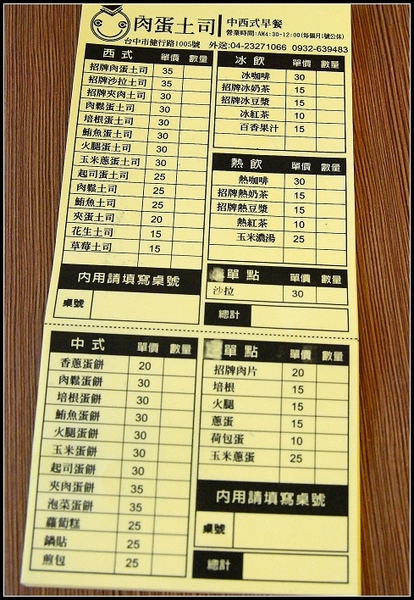 肉蛋土司 中西式早餐
營業時間:AM6:30-12:00(每個月1號公休)
台中市健行路1005號 外送:04-23271066 0932-639483
西式 單價 數量
招牌肉蛋土司 35
招牌沙拉土司 35
招牌夾肉土司 30
肉鬆蛋土司 30
培根蛋土司 30
鮪魚蛋土司 30
火腿蛋土司 30
玉米蔥蛋土司 30
起司蛋土司 25
肉鬆土司 25
鮪魚土司 25
夾蛋土司 20
花生土司 15
草莓土司 15
內用請填寫桌號
桌號
冰飲 單價 數量
冰咖啡 30
招牌冰奶茶 15
招牌冰豆漿 15
冰紅茶 10
百香果汁 15
熱飲 單價 數量
熱咖啡 30
招牌熱奶茶 15
招牌熱豆漿 15
熱紅茶 10
玉米濃湯 25
單點 單價 數量
沙拉 30
總計
中式 單價 數量
香蔥蛋餅 20
肉鬆蛋餅 30
培根蛋餅 30
鮪魚蛋餅 30
火腿蛋餅 30
玉米蛋餅 30
起司蛋餅 30
夾肉蛋餅 35
泡菜蛋餅 35
蘿蔔糕 25
鍋貼 25
煎包 25
單點 單價 數量
招牌肉片 20
培根 15
火腿 15
蔥蛋 15
荷包蛋 10
玉米蔥蛋 25
內用請填寫桌號
桌號
總計